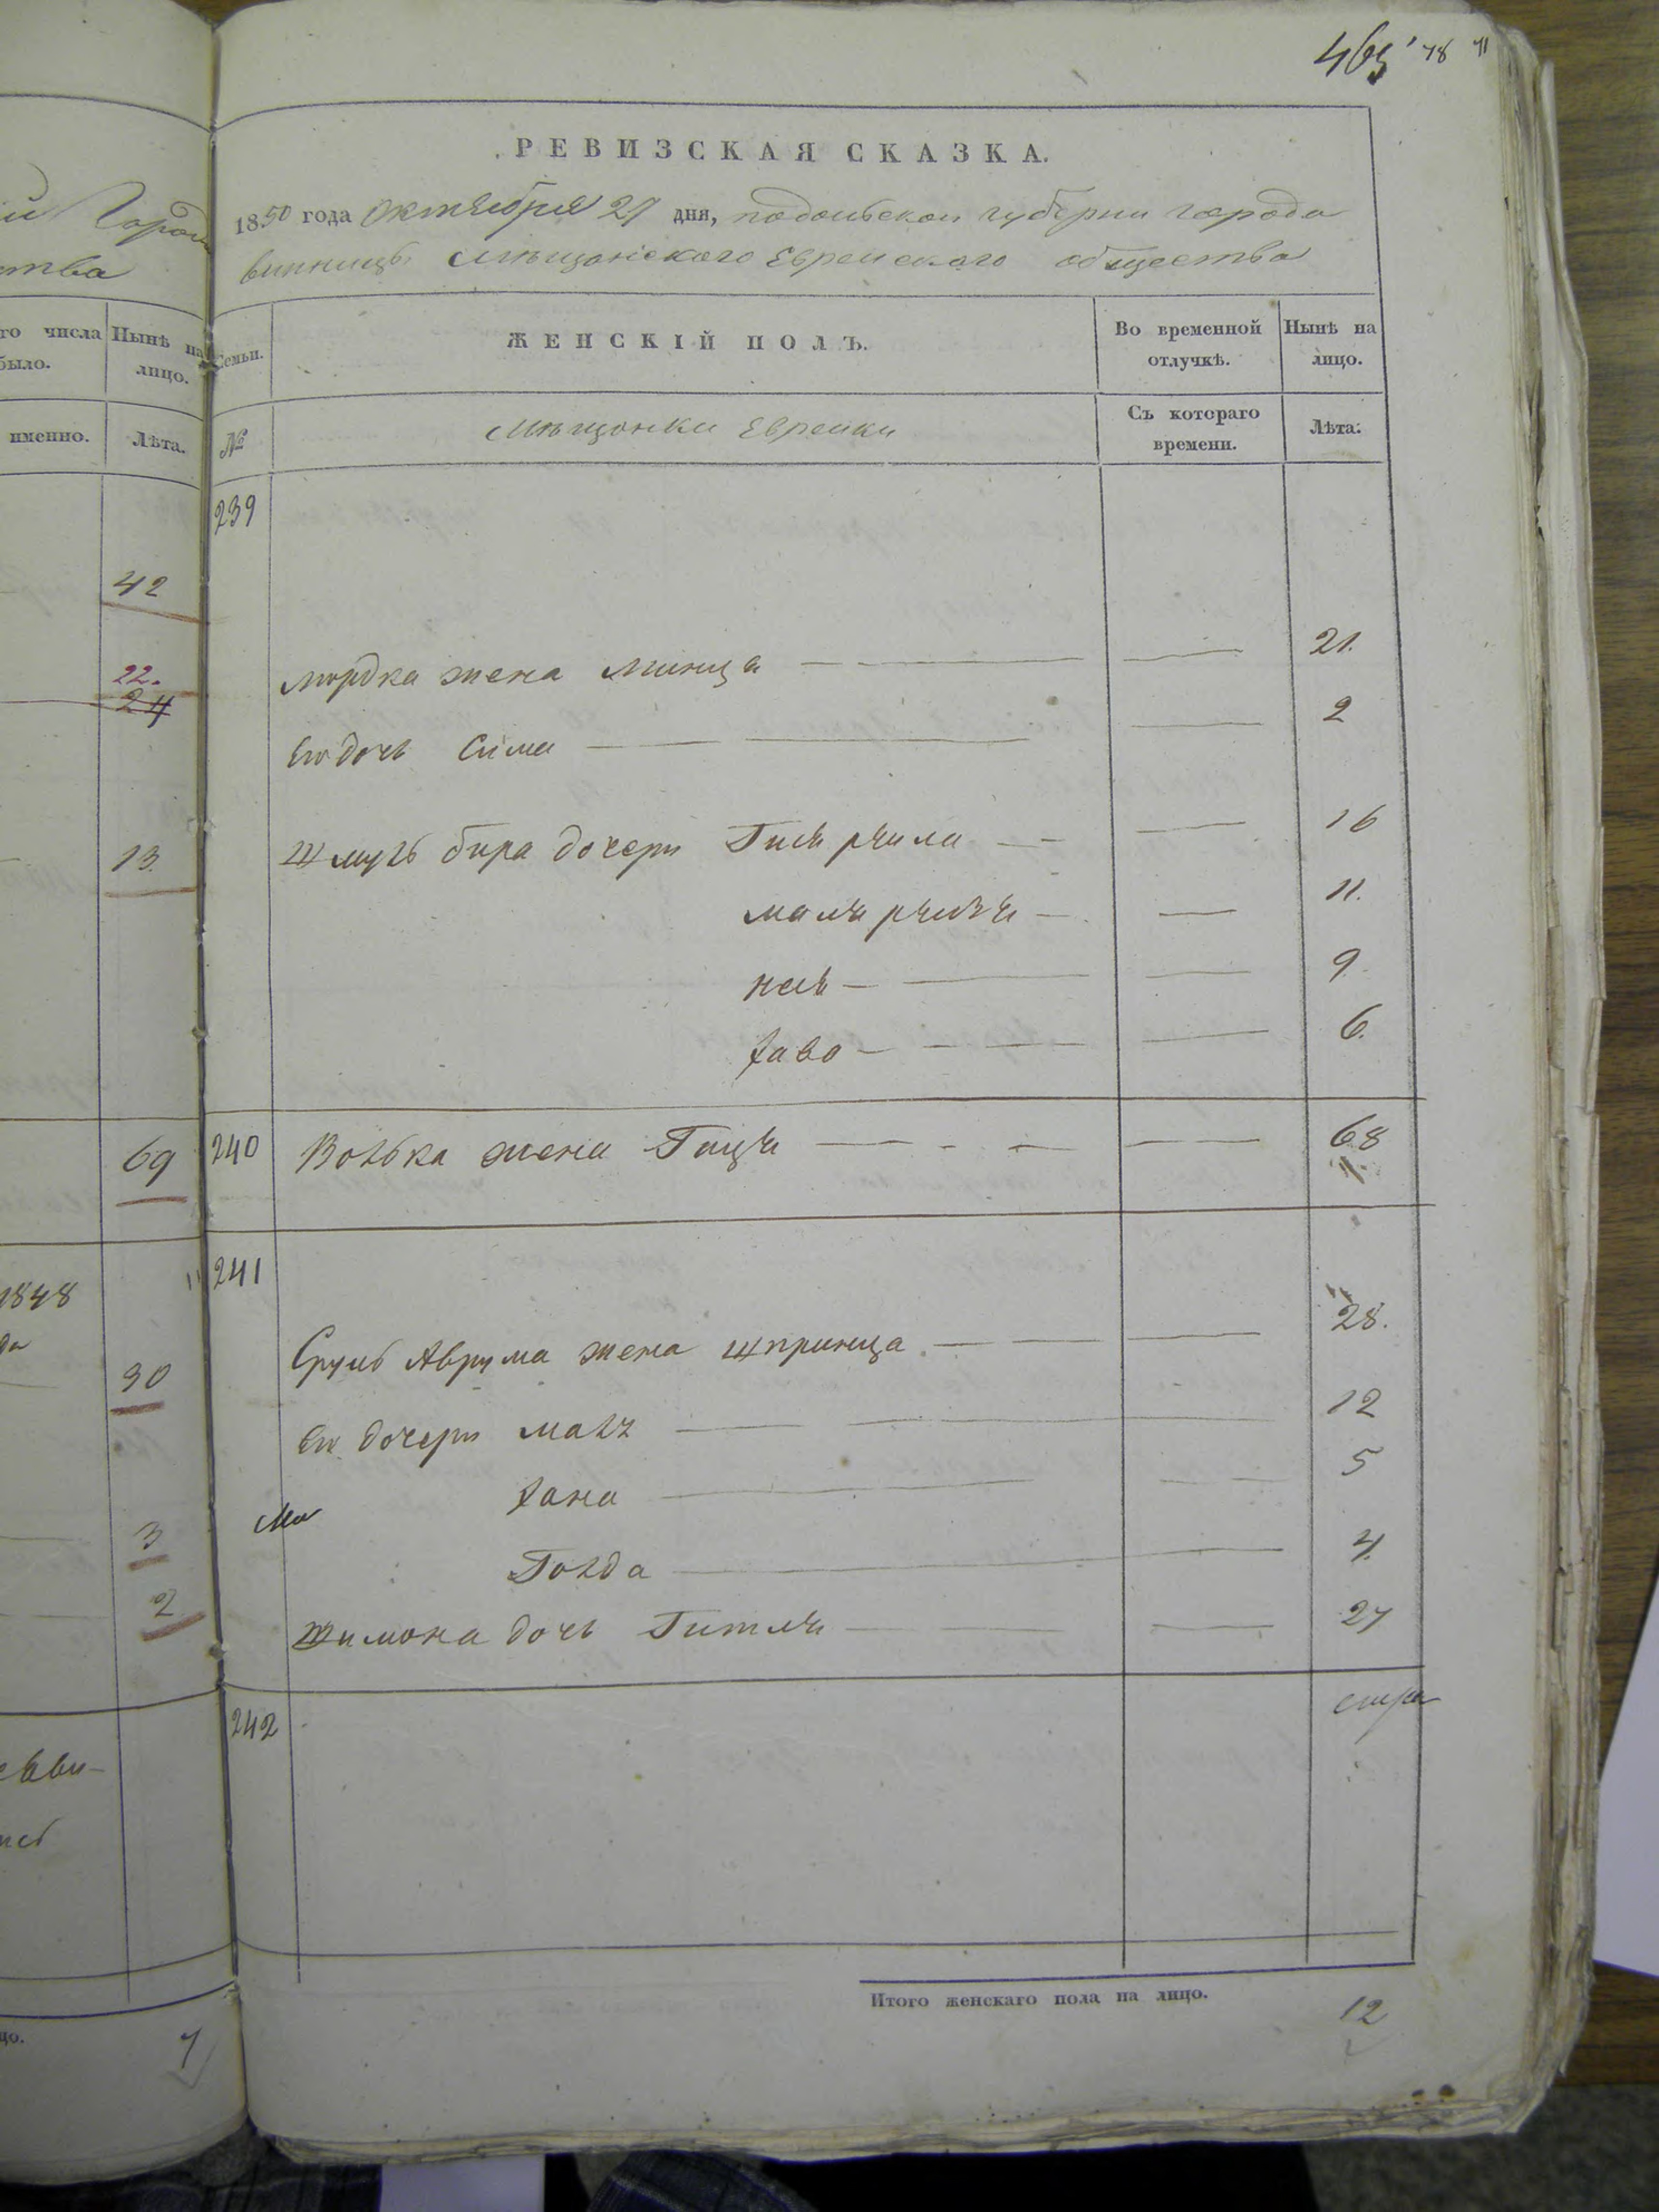 465 78 71
РЕВИЗСКАЯ СКАЗКА.
1850 года Октября 27 дня, подольской губернии города
винницы мѣщанского Еврейского общества
Семьи.
ЖЕНСКІЙ ПОЛЪ.
Во временной отлучкѣ.
Нынѣ на лицо.
№
мѣщанки Еврейки
Съ котораго времени.
Лѣта.
239
мордка жена минца 21.
Его дочь Сима 2
Шмуль бера дочери 16
11.
9.
хава 6.
240 Волька жена 68
241
Сруль Аврума жена шпринца 28.
Его дочери 12
хана 5
Голда 4.
Шимона дочь Гитля 27
242
Итого женскаго пола на лицо. 12
го числа
было.
Нынѣ на
лицо.
именно.
Лѣта.
42
22.
24
13.
69
1848
30
3
2
7